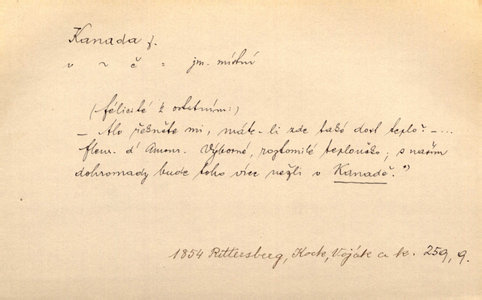 Kanada f.
v ~ č = jm. místní
(félicité k ostatním:)
– Ale řekněte mi, máte-li zde také dost teplo? – ...
fleur d'Amour. Výborné, roztomilé teploučko; s naším
dohromady bude toho více nežli v Kanadě.")
1854 Rittersberg, Kock, Voják a k. 259, 9.